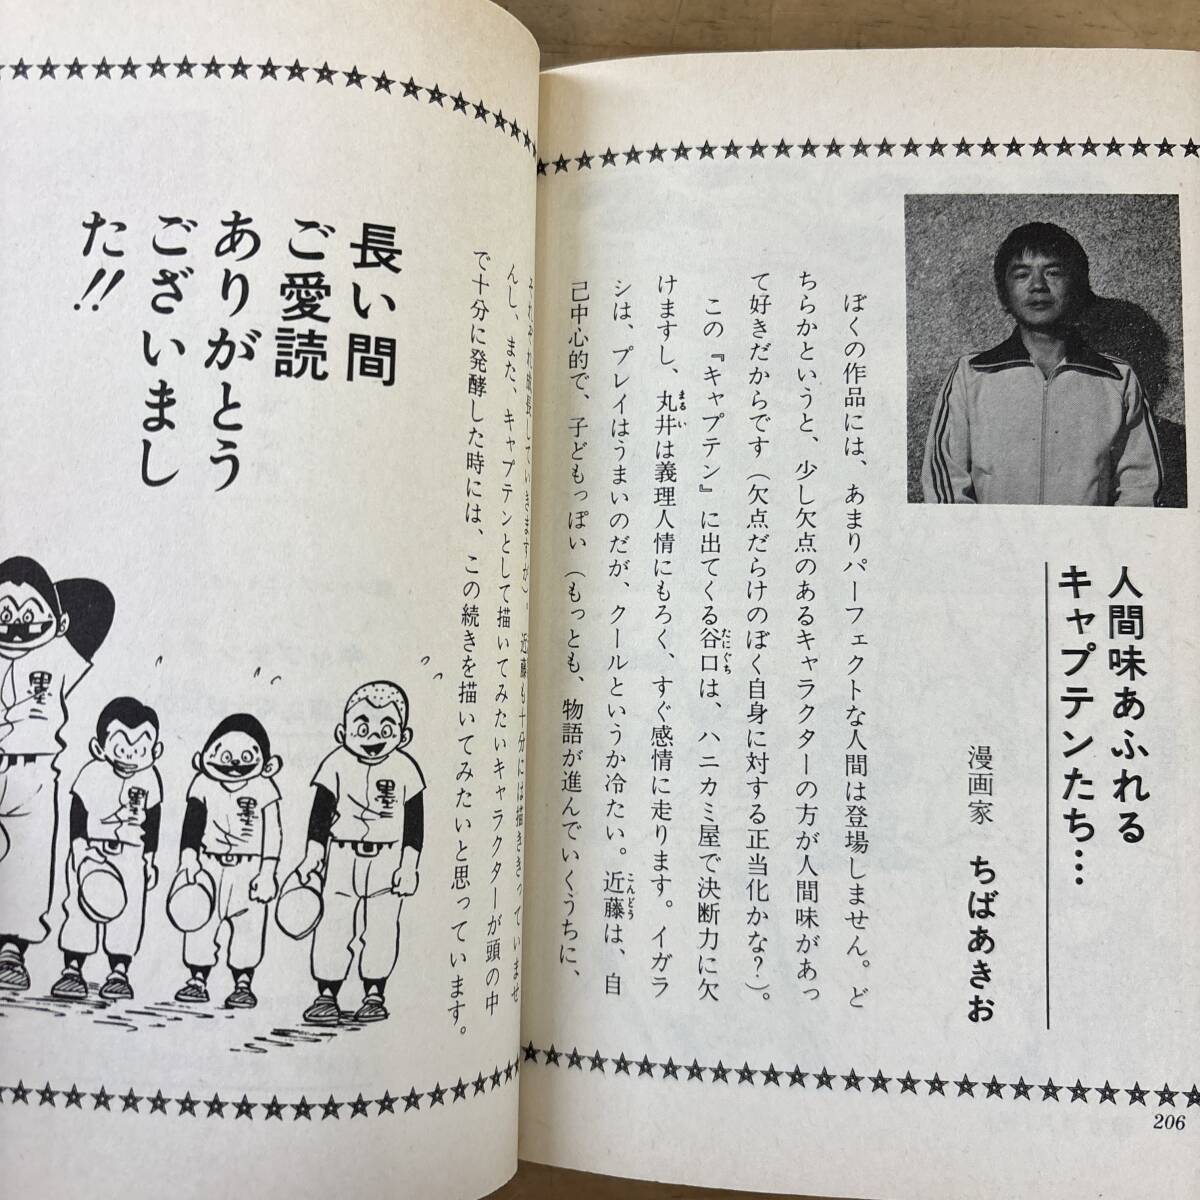 人間味あふれる
キャプテンたち…
漫画家 ちばあきお
ぼくの作品には、あまりパーフェクトな人間は登場しません。ど
ちらかというと、少し欠点のあるキャラクターの方が人間味があっ
て好きだからです（欠点だらけのぼく自身に対する正当化かな？）。
この『キャプテン』に出てくる谷口は、ハニカミ屋で決断力に欠
たにぐち
けますし、丸井は義理人情にもろく、すぐ感情に走ります。イガラ
まるい
シは、プレイはうまいのだが、クールというか冷たい。近藤は、自
こんどう
己中心的で、子どもっぽい（もっとも、物語が進んでいくうちに、
206
それぞれ成長していきますが）。近藤も十分には描ききっていませ
んし、また、キャプテンとして描いてみたいキャラクターが頭の中
で十分に発酵した時には、この続きを描いてみたいと思っています。
長い間
ご愛読
ありがとう
ございまし
た!!
墨二
墨二
墨二
墨二